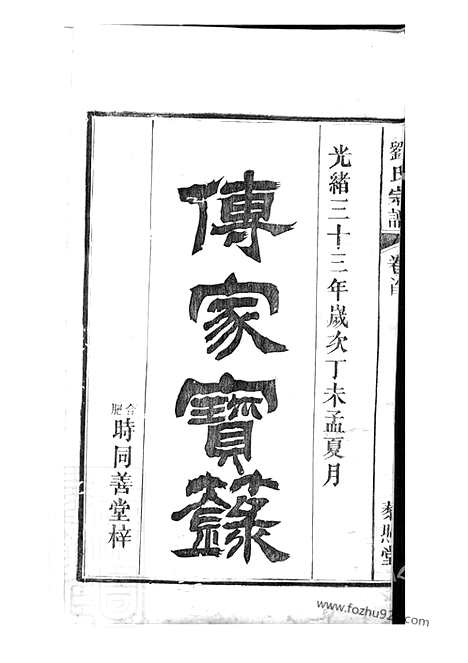 劉氏宗譜 卷首
藜照堂
光緒三十三年歲次丁未孟夏月
傳家寶錄
合肥時同善堂梓
www.fozhu92